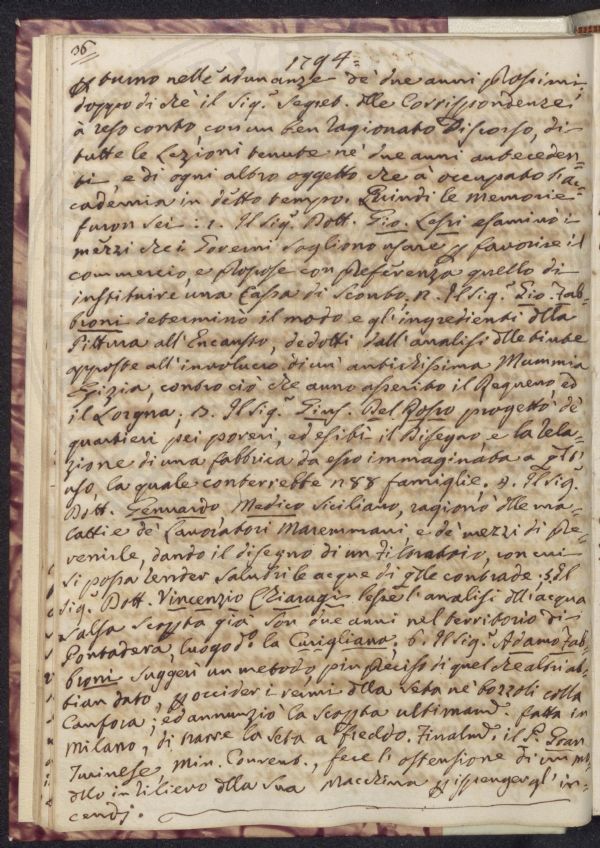 36
1794=
p turno nelle adunanze de' due anni prossimi.
doppo di che il Sig.e Segret. dlle Corrispondenze
à reso conto con un ben ragionato Discorso, di
tutte le Lezioni tenute ne' due anni anteceden=
ti, e di ogni altro oggetto che à occupato l'ac=
cademia in detto tempo. Quindi le memorie
furon sei: 1. Il Sig.e Dott. Gio. Lessi esaminò i
mezzi che i Governi sogliono usare p favorire il
commercio, e propose con preferenza quello di
instituire una Cassa di Sconto. 2. Il Sig.e Gio. Fab=
broni determinò il modo e gl'ingredienti dlla
Pittura all'Encausto, dedotti dall'analisi dlle tinte
apposte all'involucro di un' antichissima Mummia
Egizia, contro ciò che anno asserito il Requeno, ed
il Lorgna; 3. Il Sig.e Gius. Del Rosso progettò de'
quartieri pei poveri, ed esibì il Disegno e la Rela=
zione di una fabbrica da esso immaginata a qsto
uso, la quale conterrebbe n 88 famiglie. 4. Il Sig.e
Dott. Gennardo Medico Siciliano, ragionò dlle ma=
lattie de' Lavoratori Maremmani e de' mezzi di pre=
venirle, dando il disegno di un filtratoio, con cui
si possa render salubri le acque di qlle contrade. 5. Il
Sig.e Dott. Vincenzio Chiarugi lesse l'analisi dll'acqua
salsa scopta già son due anni nel territorio di
Pontadera, luogo do la Curigliana, 6. Il Sig.e Adamo Fab=
broni suggerì un metodo più preciso di quel che altri ab=
bian dato, p occider i vermi dlla seta ne' bozzoli colla
Canfora; ed annunziò la scopta ultimam. fatta in
Milano, di trarre la seta a freddo. Finalm. il P. Gran
Turinese Min. Convent., fece l'ostensione di un mo=
dllo in rilievo dlla sua Macchina p ispengergl'in=
cendj.